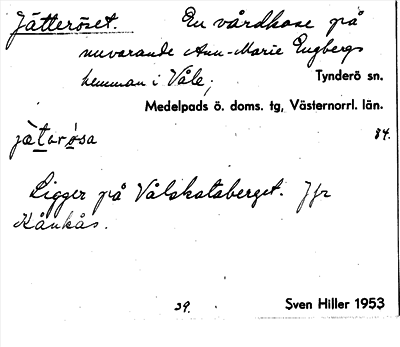 Jätteröset. En vårdkase på
nuvarande Ann-Marie Engbergs
hemman i Våle; Tynderö sn.
Medelpads ö. doms. tg, Västernorrl. län.
jä̀tarö̀sa 84.
Ligger på Vålskatsberget. Jfr
Kånkås.
39. Sven Hiller 1953